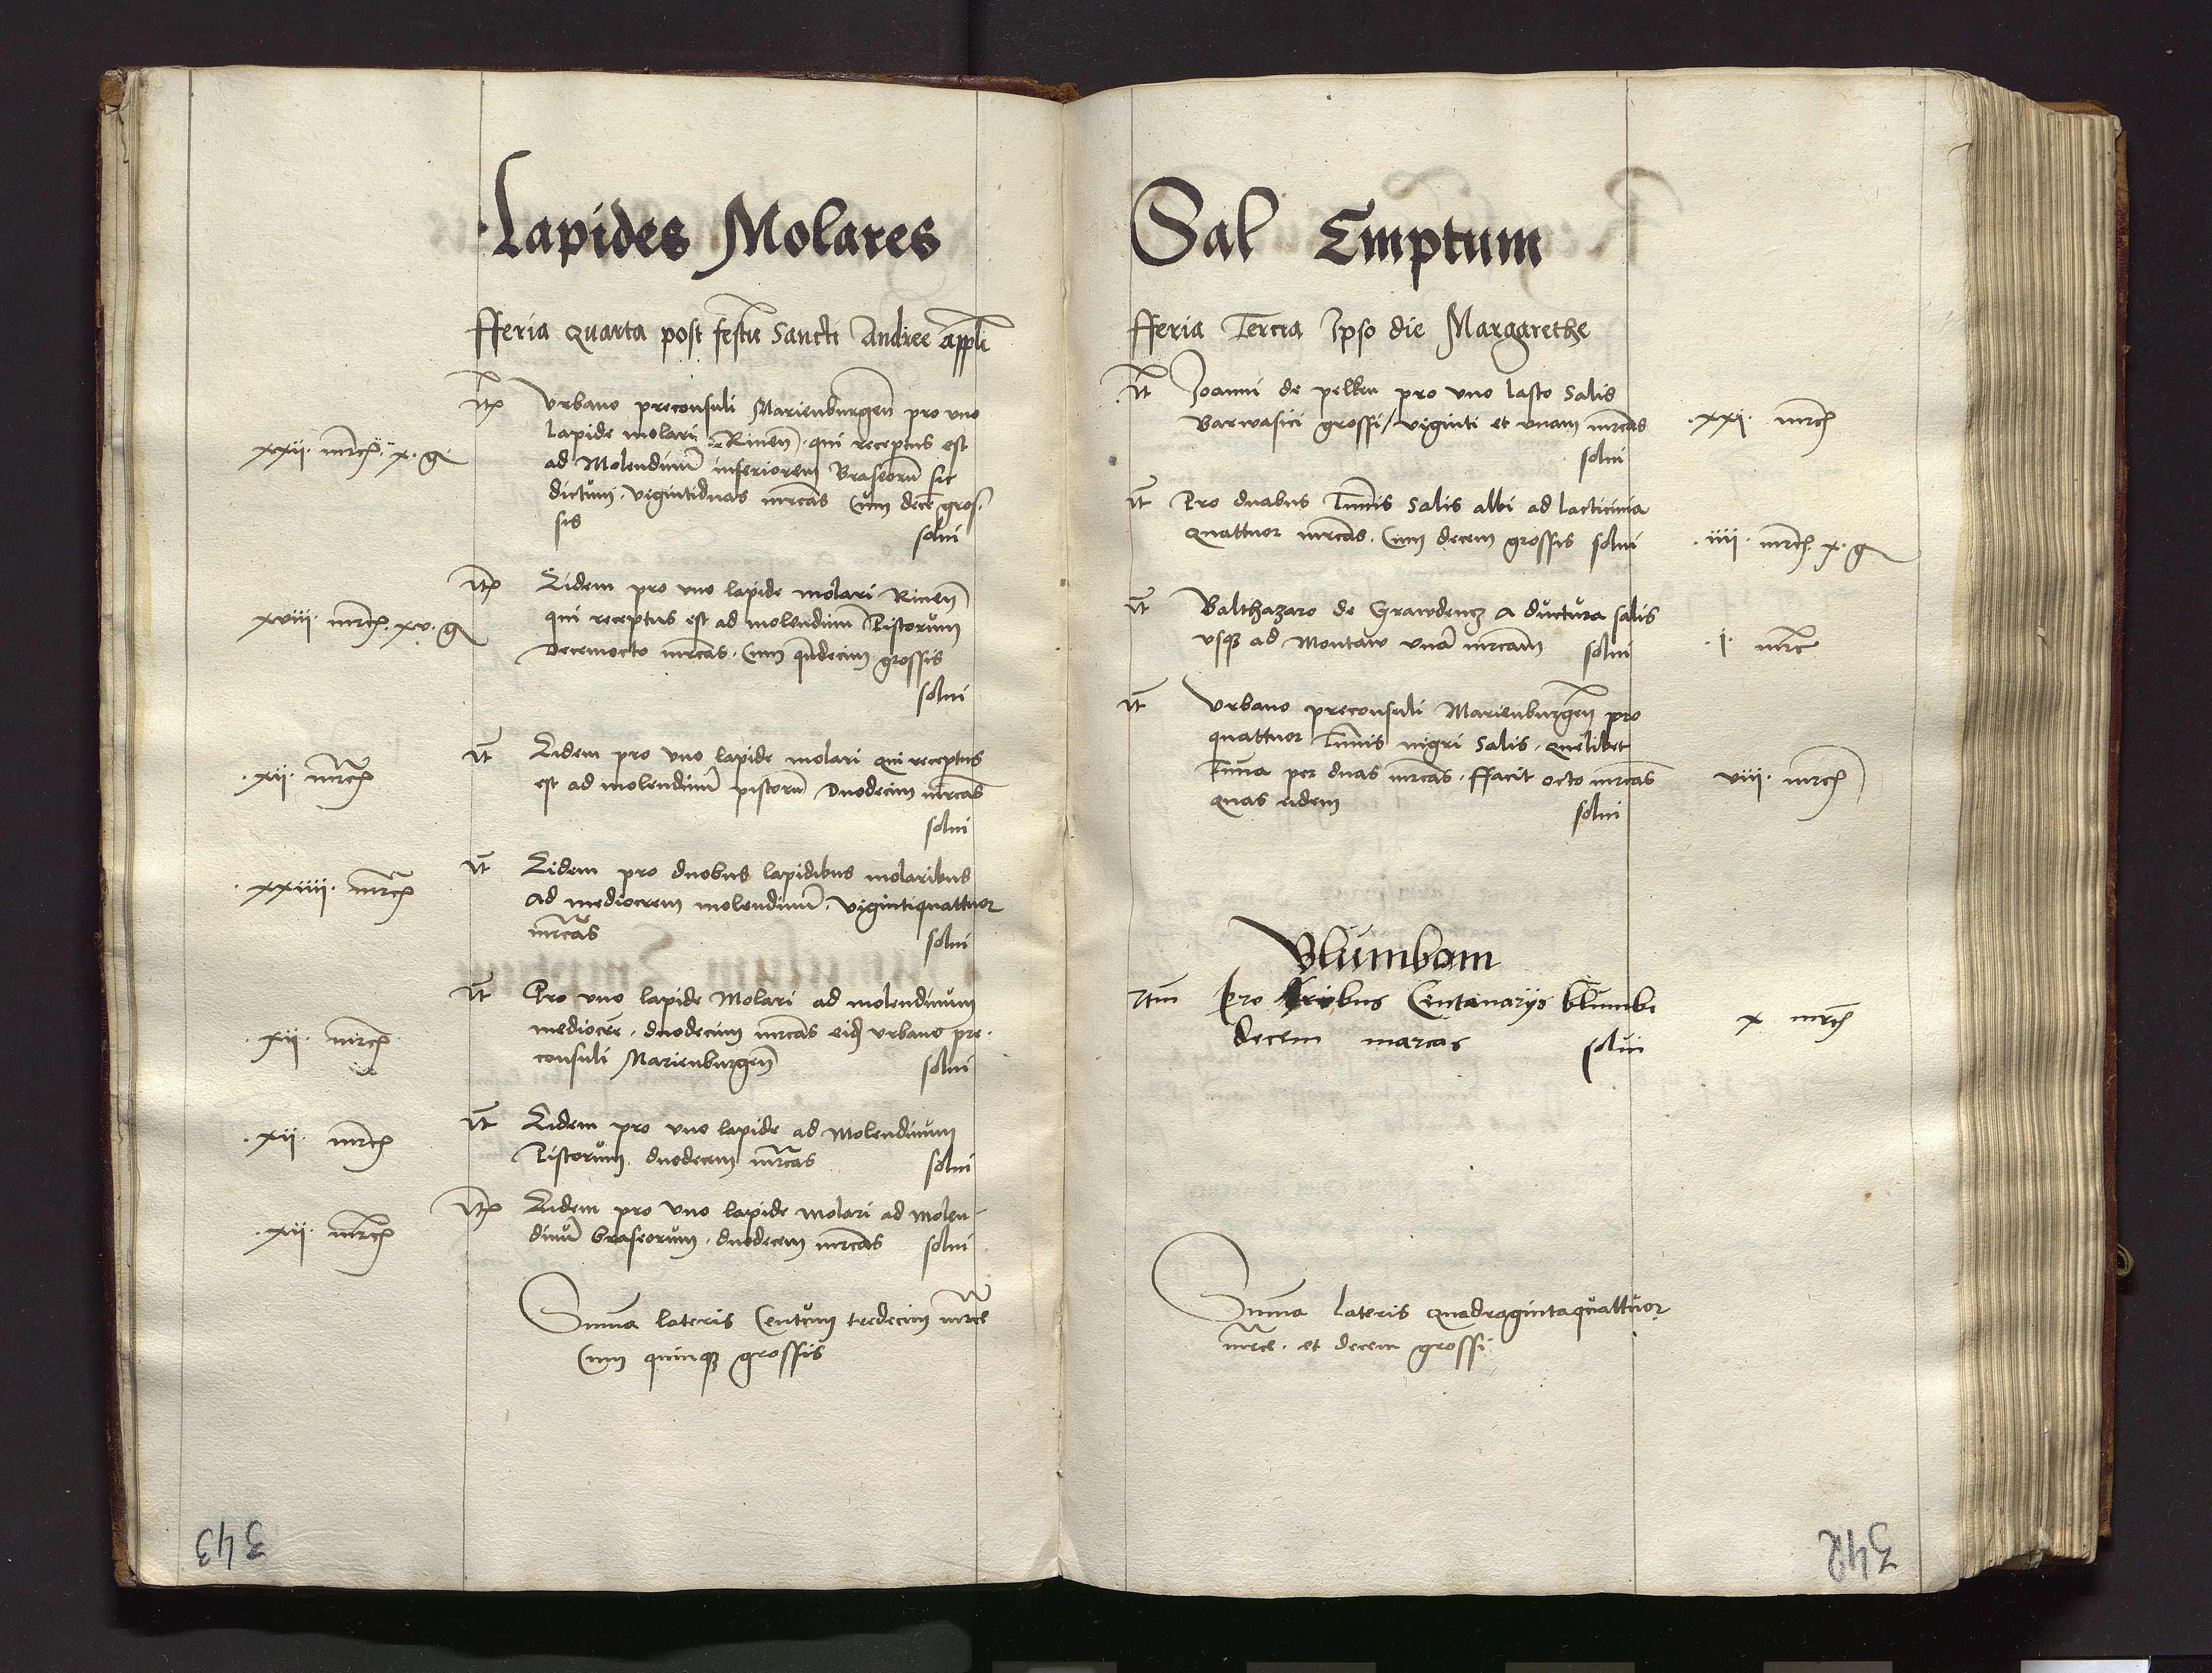 Lapides Molares
fferia quarta post festu Sancti Andree appli
Itē Vrbano preconsuli Marienburgen̄ pro vno
lapide molari Rinen̄ qui receptus est
xxii mrc̄ x g
ad Molendinū inferiorem Braseorū sic
dictum vigintiduas mrcas Cum decē gros
sis
solui
Itē Eidem pro vno lapide molari Rinen̄
qui receptus est ad molendinū Pistorum
xviii mrc̄ xv g
Decemocto mrcas Cum qndecim grossis
solui
It̄ Eidem pro vno lapide molari qui receptus
xii mrc̄
est ad molendinū pistorū Duodecim mrcas
solui
It̄ Eidem pro duobus lapidibus molaribus
xxiiii mrc̄
ad mediocrem molendinū vigintiquattuor
mrcas
solui
It̄ Pro vno lapide Molari ad molendinum
mediocrē duodecim mrcas eid vrbano pre
xii mrc̄
consuli Marienburgen̄
solui
It̄ Eidem pro vno lapide ad Molendinum
xii mrc̄
Pistorum duodecem mrcas solui
Itē Eidem pro vno lapide molari ad Molen-
xii mrc̄
dinū braseorum duodecem mrcas solui
Suma lateris Centum tredecim mrce
Cum quinqz grossis
343
Sal Emptum
fferia Tercia Ipso die Margarethe
It̄ Joanni de pelken pro vno lasto Salis
Barwasici grossi / viginti et vnam mrcas
xxi mrc̄
solui
It̄ Pro duabus Tunnis Salis albi ad lacticinia
quattuor mrcas Cum decem grossis solui
iiii mrc̄ x g
It̄ Balthazaro de Grawdencz a ductura salis
vsqz ad Montaw vnā mrcam solui
i mrc
It̄ Vrbano preconsuli Marienburgen̄ pro
quattuor Tunnis nigri Salis quelibet
Tuna per duas mrcas ffacit octo mrcas
viii mrc̄
quas eidem
solui
Blumbom
Itm pro tribus Centanarijs blumbi
decem marcas solui
x mrc̄
Suma lateris quadragintaquattuor
mrce et decem grossi
342